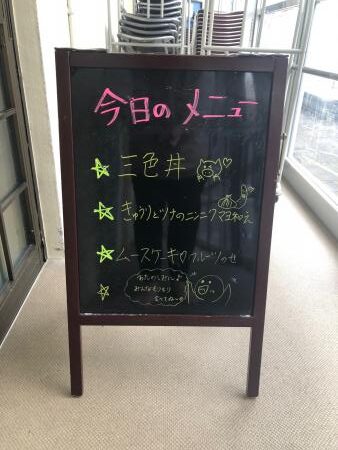 今日のメニュー
☆ 三色丼
☆ きゅうりとツナのニンニクマヨ和え
☆ ムースケーキ フルーツのせ
☆ おたのしみに♪
みんなもりもり
食べてね〜